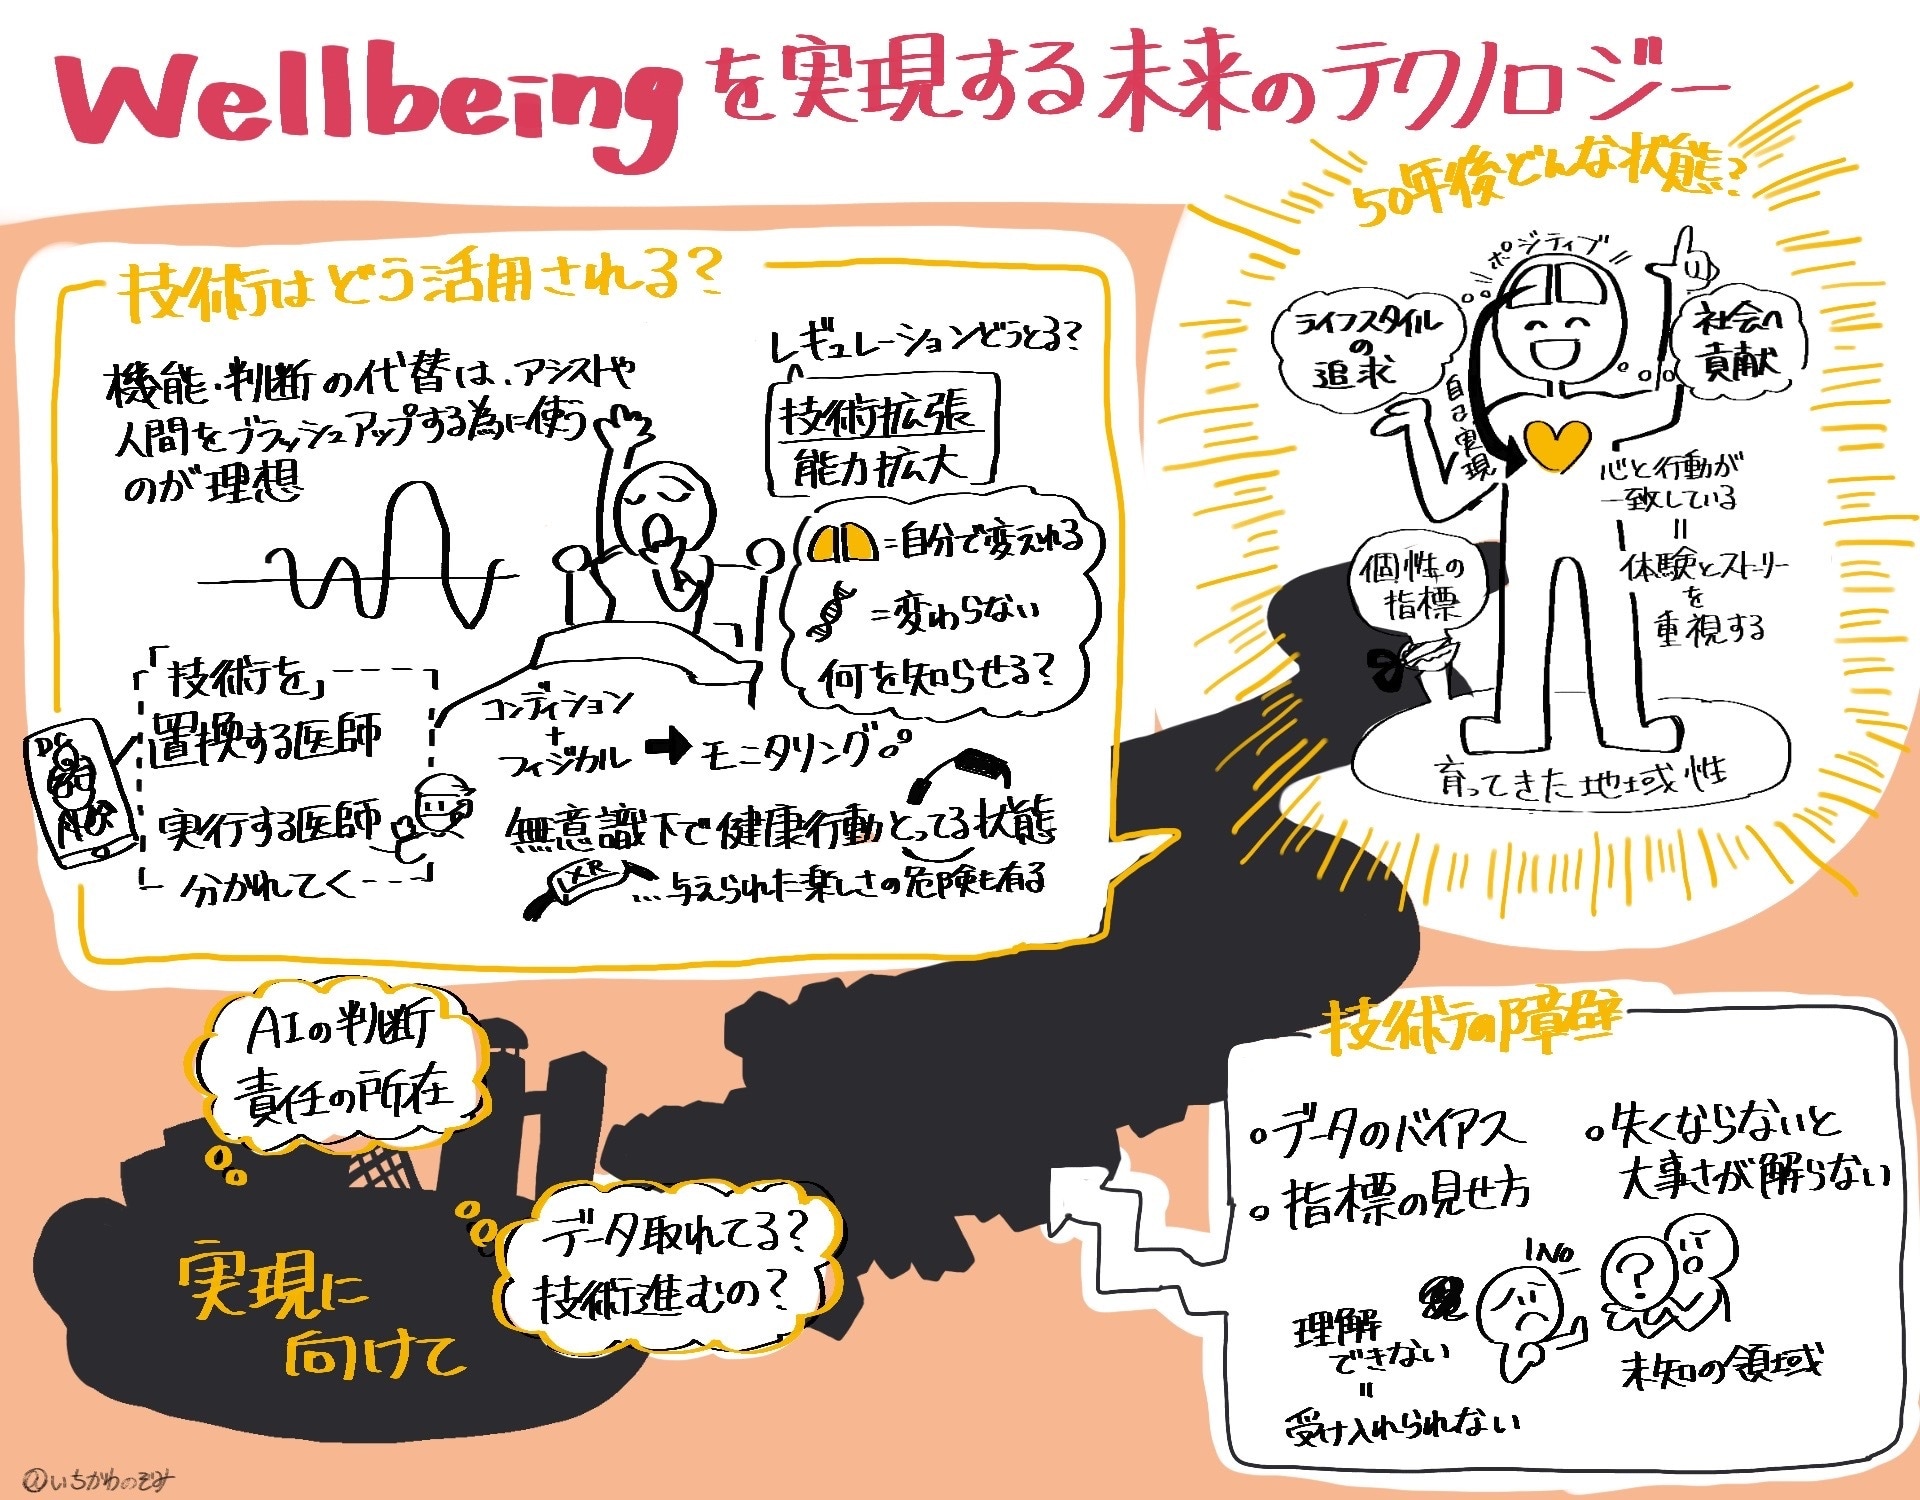 Wellbeingを実現する未来のテクノロジー
技術はどう活用される?
機能・判断の代替は、アシストや
人間をブラッシュアップする為に使う
のが理想
レギュレーションどうとる?
技術拡張
能力拡大
=自分で変えれる
=変わらない
何を知らせる?
「技術を」
置換する医師
実行する医師
分かれてく
コンディション
+
フィジカル
モニタリング
無意識下で健康行動とってる状態
XR
...与えられた楽しさの危険も有る
50年後どんな状態?
ポジティブ
ライフスタイル
の
追求
社会へ
貢献
自己実現
心と行動が
一致している
=
体験とストーリー
を
重視する
個性の
指標
育ってきた地域性
AIの判断
責任の所在
データ取れてる?
技術進むの?
実現に
向けて
技術の障壁
・データのバイアス
・指標の見せ方
・失くならないと
大事さが解らない
NO
?
理解
できない
=
受け入れられない
未知の領域
@いちかわのぞみ